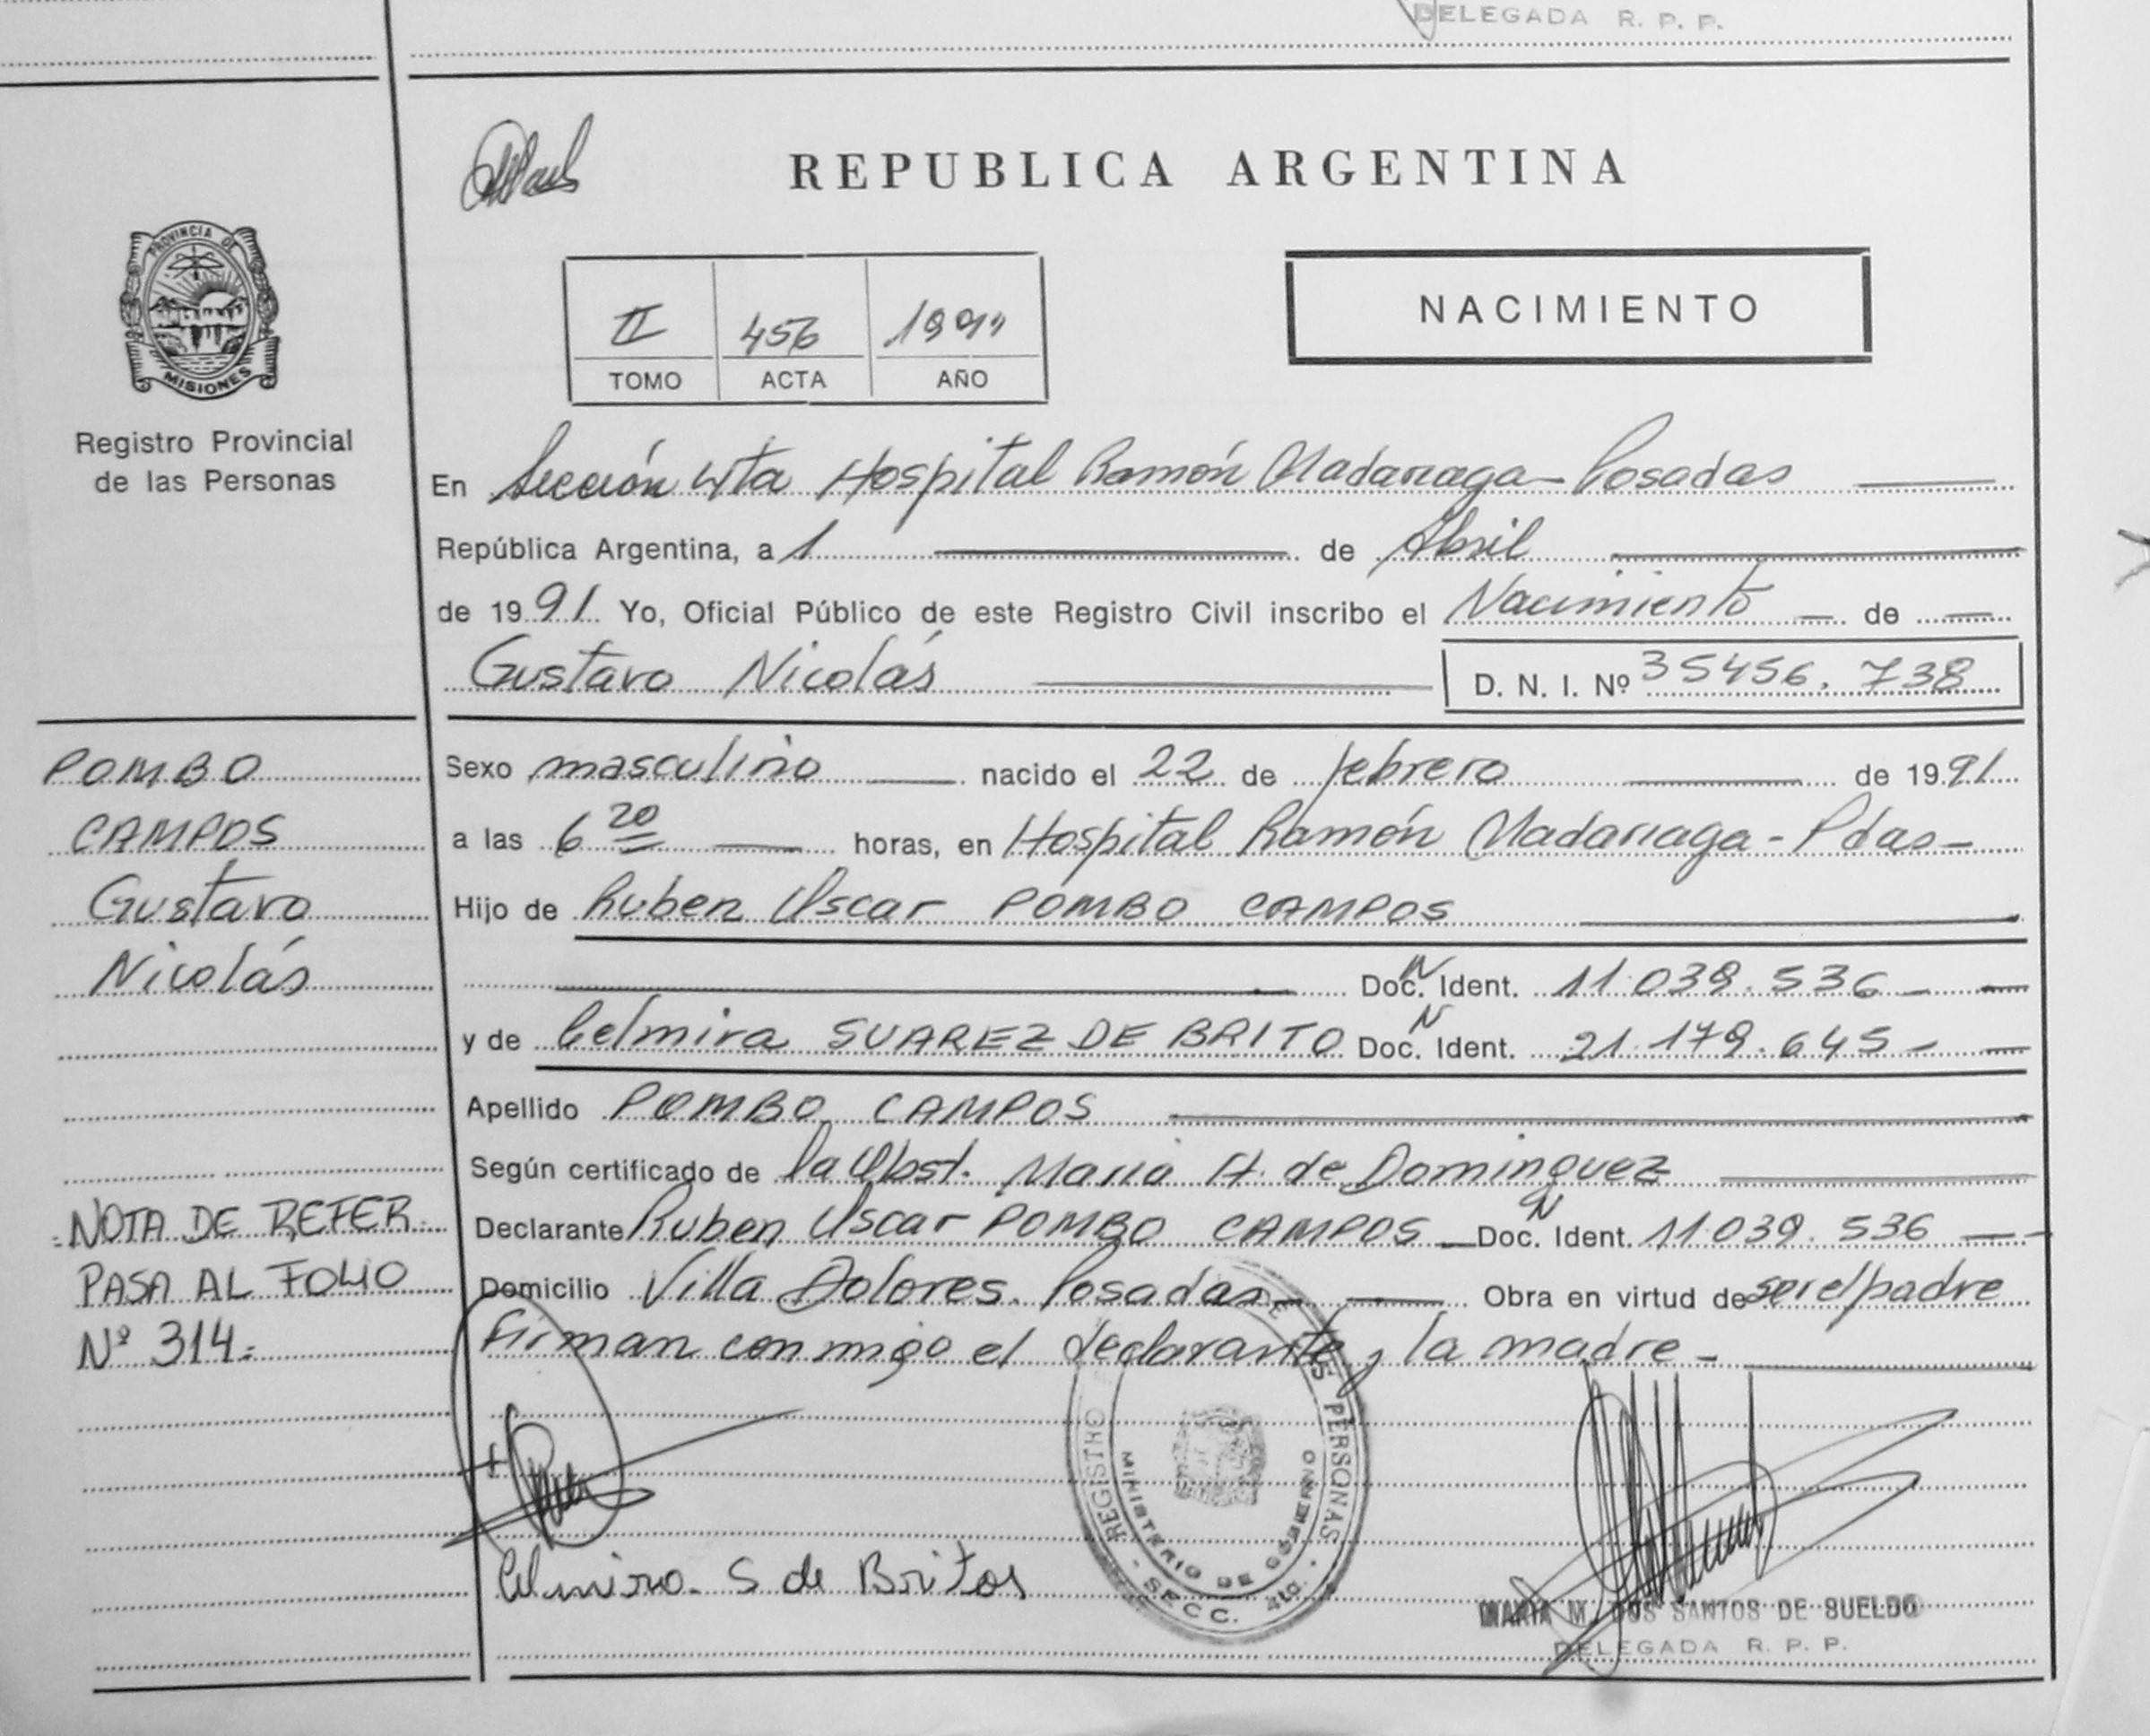 DELEGADA R. P. P.
REPUBLICA ARGENTINA
PROVINCIA DE
MISIONES
Registro Provincial
de las Personas
II 456 1991
TOMO ACTA AÑO
NACIMIENTO
En Sección 4ta Hospital Ramón Madariaga - Posadas
República Argentina, a 1 de Abril
de 1991. Yo, Oficial Público de este Registro Civil inscribo el Nacimiento de
Gustavo Nicolás
D. N. I. Nº 35456.738
POMBO
CAMPOS
Gustavo
Nicolás
NOTA DE REFER.
PASA AL FOLIO
Nº 314.
Sexo masculino nacido el 22 de febrero de 1991
a las 6 20 horas, en Hospital Ramón Madariaga - Pdas -
Hijo de Ruben Oscar POMBO CAMPOS
Doc. N Ident. 11.039.536 -
y de Celmira SUAREZ DE BRITO Doc. N Ident. 21.179.645 -
Apellido POMBO CAMPOS
Según certificado de la Obst. Maria H. de Dominguez
Declarante Ruben Oscar POMBO CAMPOS Doc. N Ident. 11.039.536
Domicilio Villa Dolores. Posadas - Obra en virtud de ser el padre
Firman conmigo el declarante y la madre -
Celmira. S de Britos
REGISTRO DE LAS PERSONAS
MINISTERIO DE GOBIERNO
- SECC. 4ta. -
MARIA M. DOS SANTOS DE SUELDO
DELEGADA R. P. P.